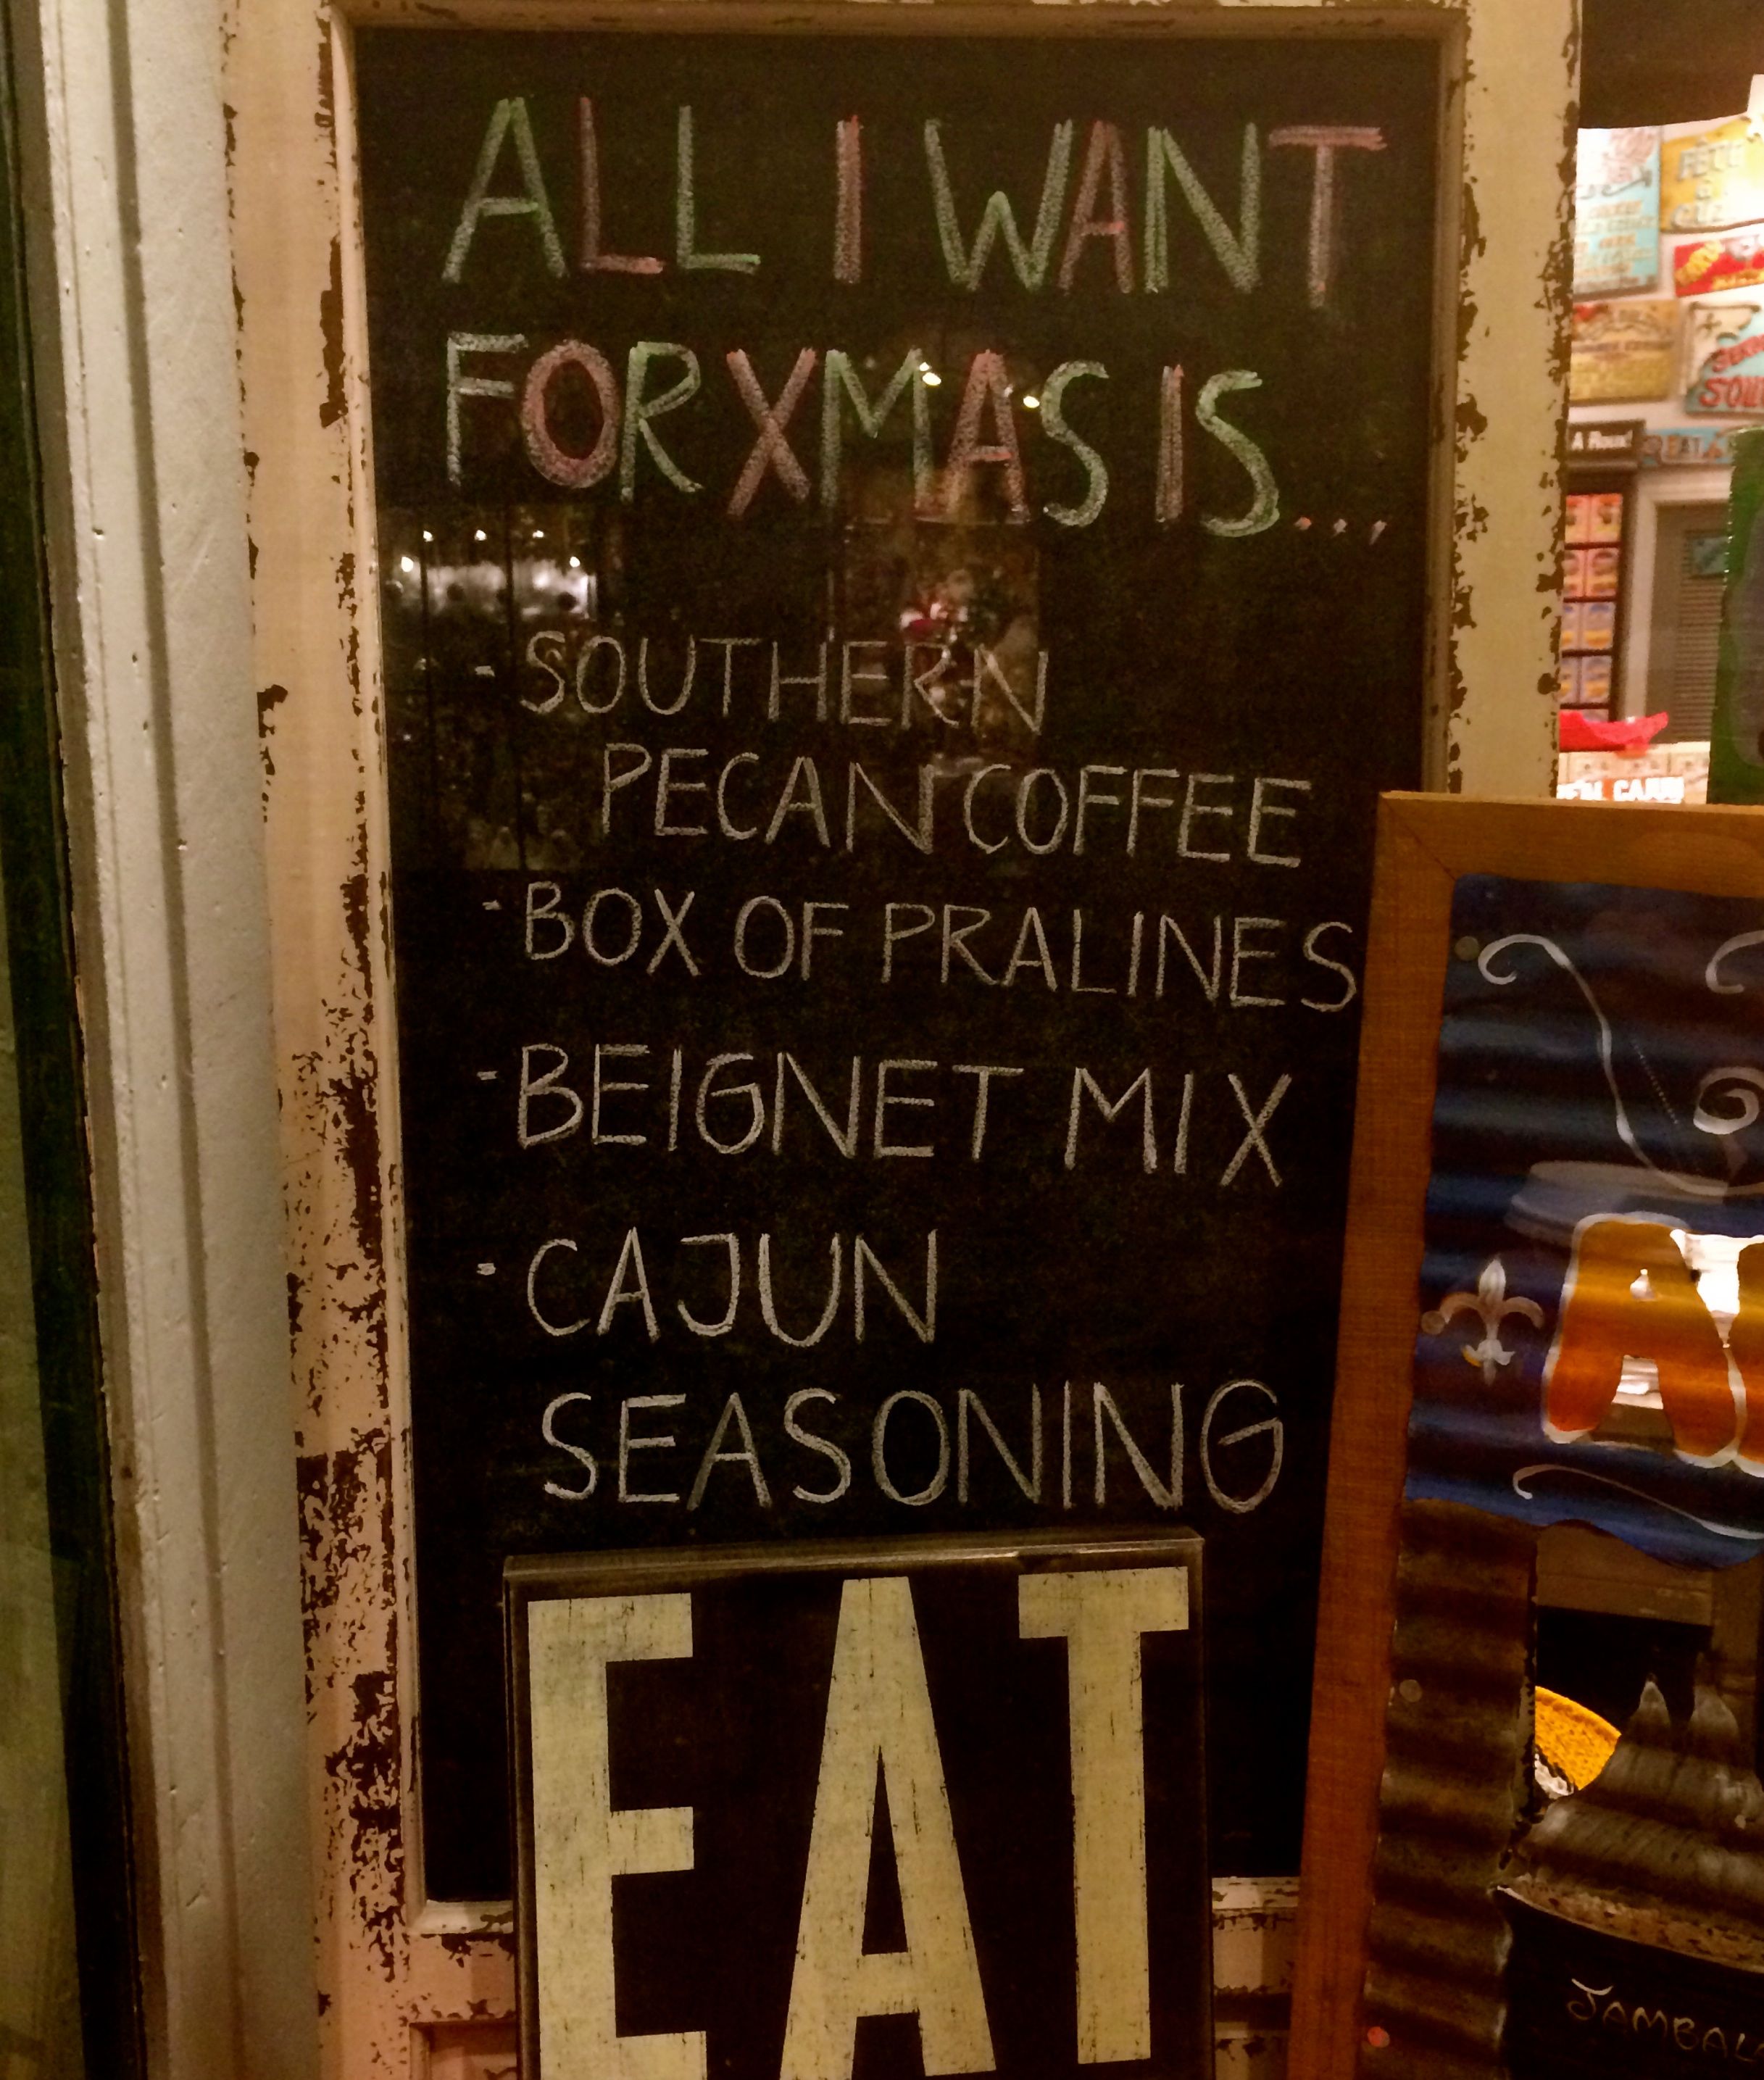 ALL I WANT
FOR XMAS IS...
- SOUTHERN
PECAN COFFEE
- BOX OF PRALINES
- BEIGNET MIX
- CAJUN
SEASONING
EAT
JAMBAL